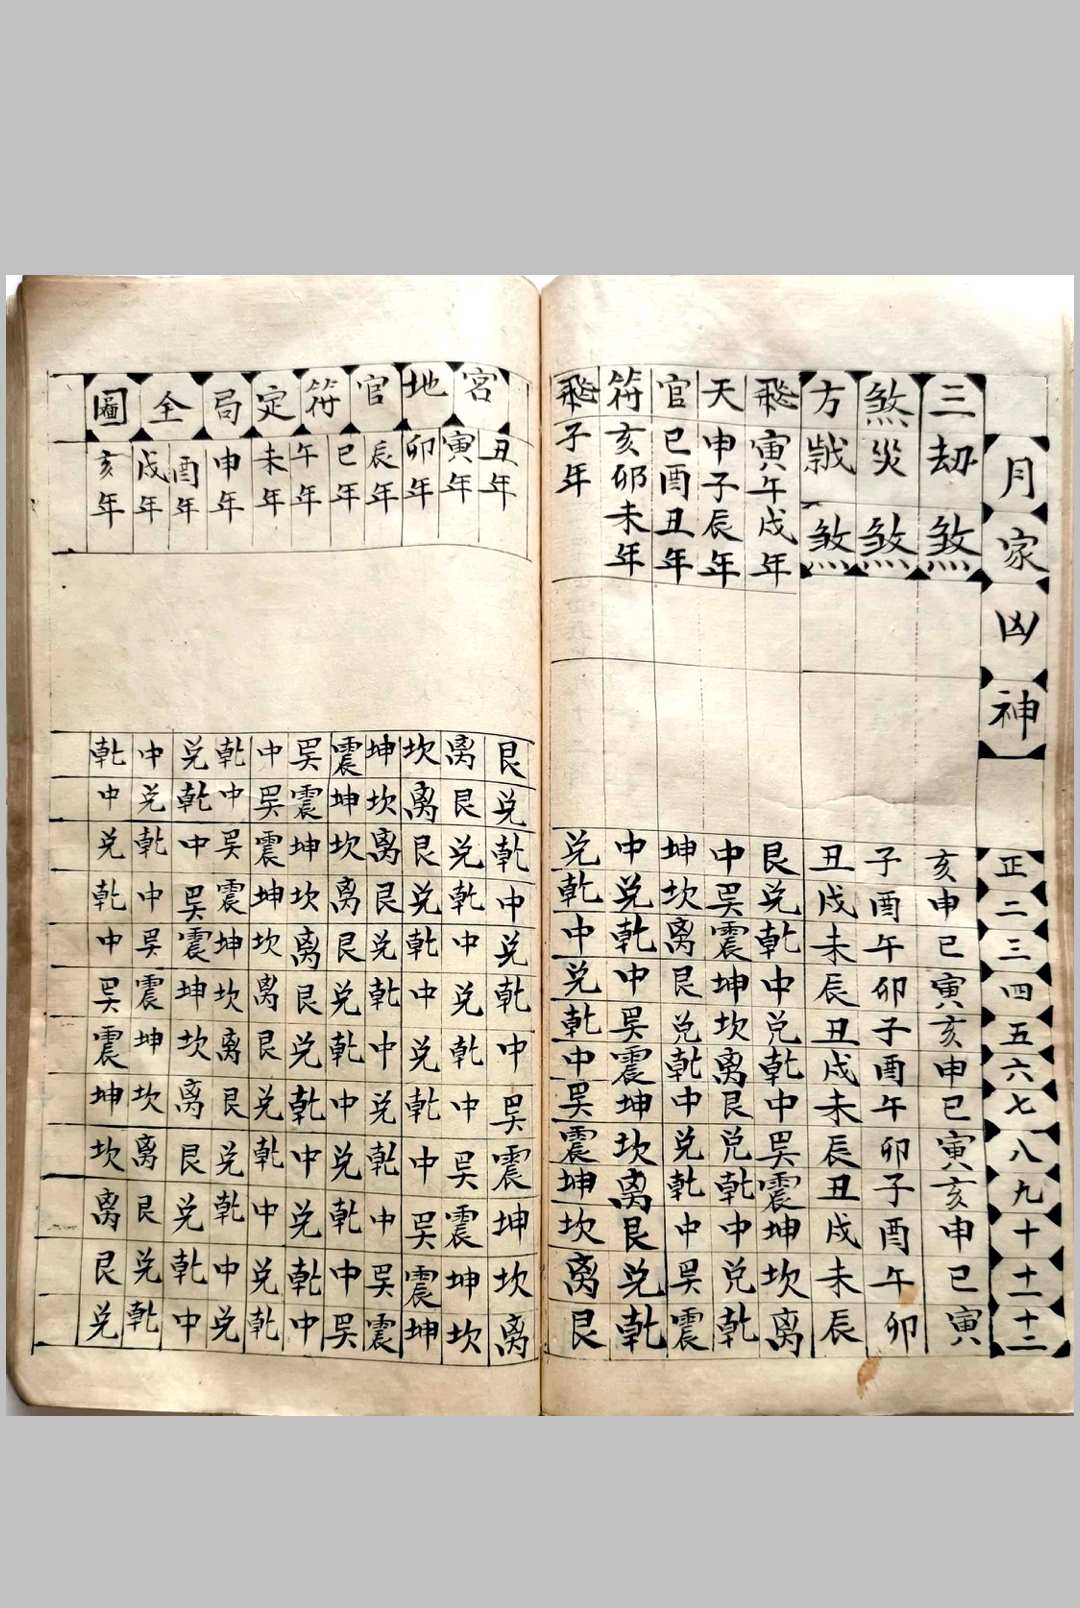 月家凶神
正二三四五六七八九十十一十二
三煞方
刼煞亥申巳寅亥申巳寅亥申巳寅
災煞子酉午卯子酉午卯子酉午卯
歲煞丑戌未辰丑戌未辰丑戌未辰
飛天官符
寅午戌年艮兑乾中兑乾中巽震坤坎离
申子辰年中巽震坤坎离艮兑乾中兑乾
巳酉丑年坤坎离艮兑乾中兑乾中巽震
亥卯未年中兑乾中巽震坤坎离艮兑乾
飛宮地官符定局全圖
子年兑乾中兑乾中巽震坤坎离艮
丑年艮兑乾中兑乾中巽震坤坎离
寅年离艮兑乾中兑乾中巽震坤坎
卯年坎离艮兑乾中兑乾中巽震坤
辰年坤坎离艮兑乾中兑乾中巽震
巳年震坤坎离艮兑乾中兑乾中巽
午年巽震坤坎离艮兑乾中兑乾中
未年中巽震坤坎离艮兑乾中兑乾
申年乾中巽震坤坎离艮兑乾中兑
酉年兑乾中巽震坤坎离艮兑乾中
戌年中兑乾中巽震坤坎离艮兑乾
亥年乾中兑乾中巽震坤坎离艮兑